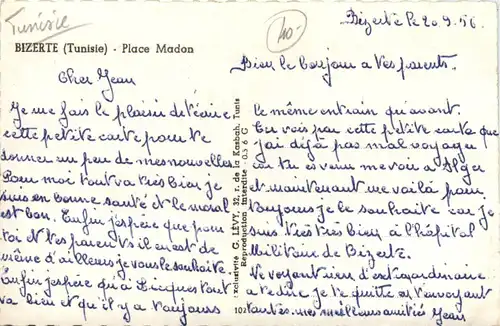 Tunisie
40-
BIZERTE (Tunisie) - Place Madon
Bizerte le 20.9.56
Bien le bonjour a tes parents.
Cher Jean
Je me fais le plaisir de t'écrire
cette petite carte pour te
donner un peu de mes nouvelles
Pour moi tout va très bien je
suis en bonne santé et le moral
est bon. Enfin j'espère que pour
toi et tes parents il en est de
même d'ailleurs je vous le souhaite.
Enfin j'espère qui a tout
va bien et qu'il y a toujours
le même entrain qu'avant.
Tu vois par cette petite carte que
j'ai déjà pas mal voyagé
car tu es venu me voir a Alger
et maintenant me voilà pour
toujours je le souhaite car je
suis très très bien a l'hôpital
Militaire de Bizerte.
Ne voyant rien d'extraordinaire
a te dire je te quitte en t'envoyant
toutes mes meilleurs amitiés Jean
Exclusivité G. LÉVY, 32, r. de la Kasbah, Tunis
Reproduction Interdite - O.S 6 G
102